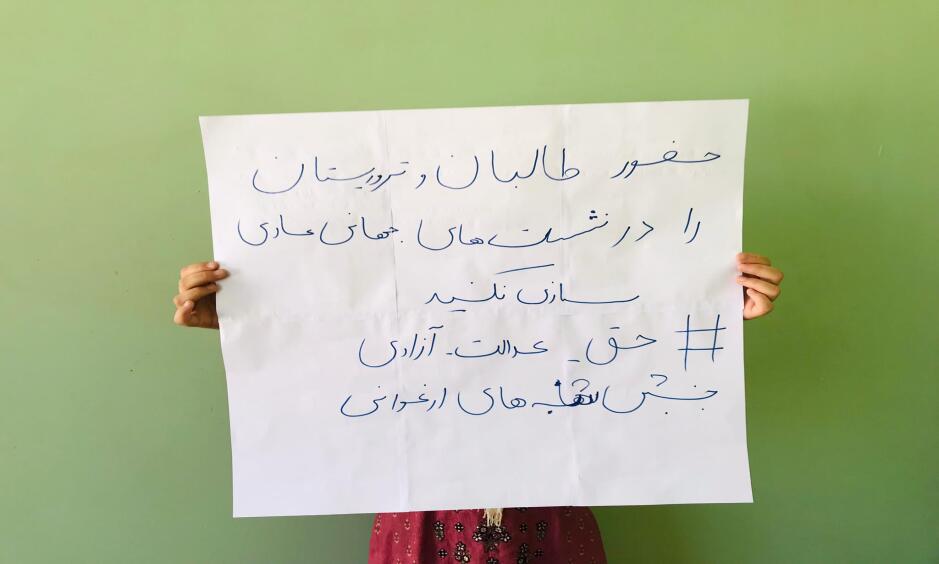 حضور طالبان و تروریستان
را در نشست های جهانی عادی
سازی نکنید
# حق_ عدالت_ آزادی
جنبش های ارغوانی